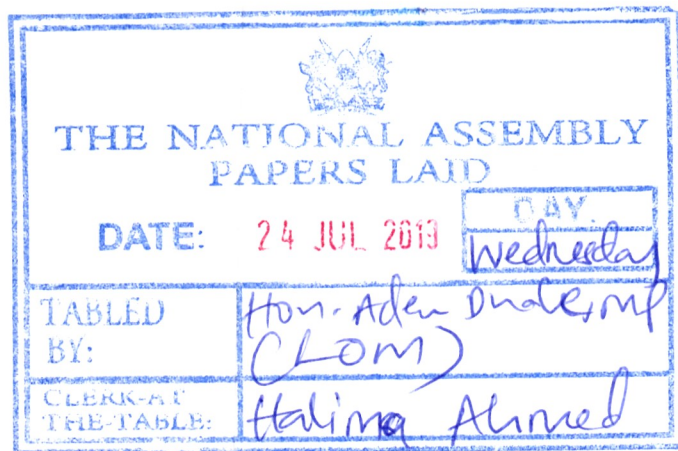 THE NATIONAL ASSEMBLY
PAPERS LAID
DATE: 24 JUL 2019
DAY.
Wednesday
TABLED BY: Hon. Aden Duale, MP
(LOM)
CLERK-AT THE-TABLE: Halima Ahmed